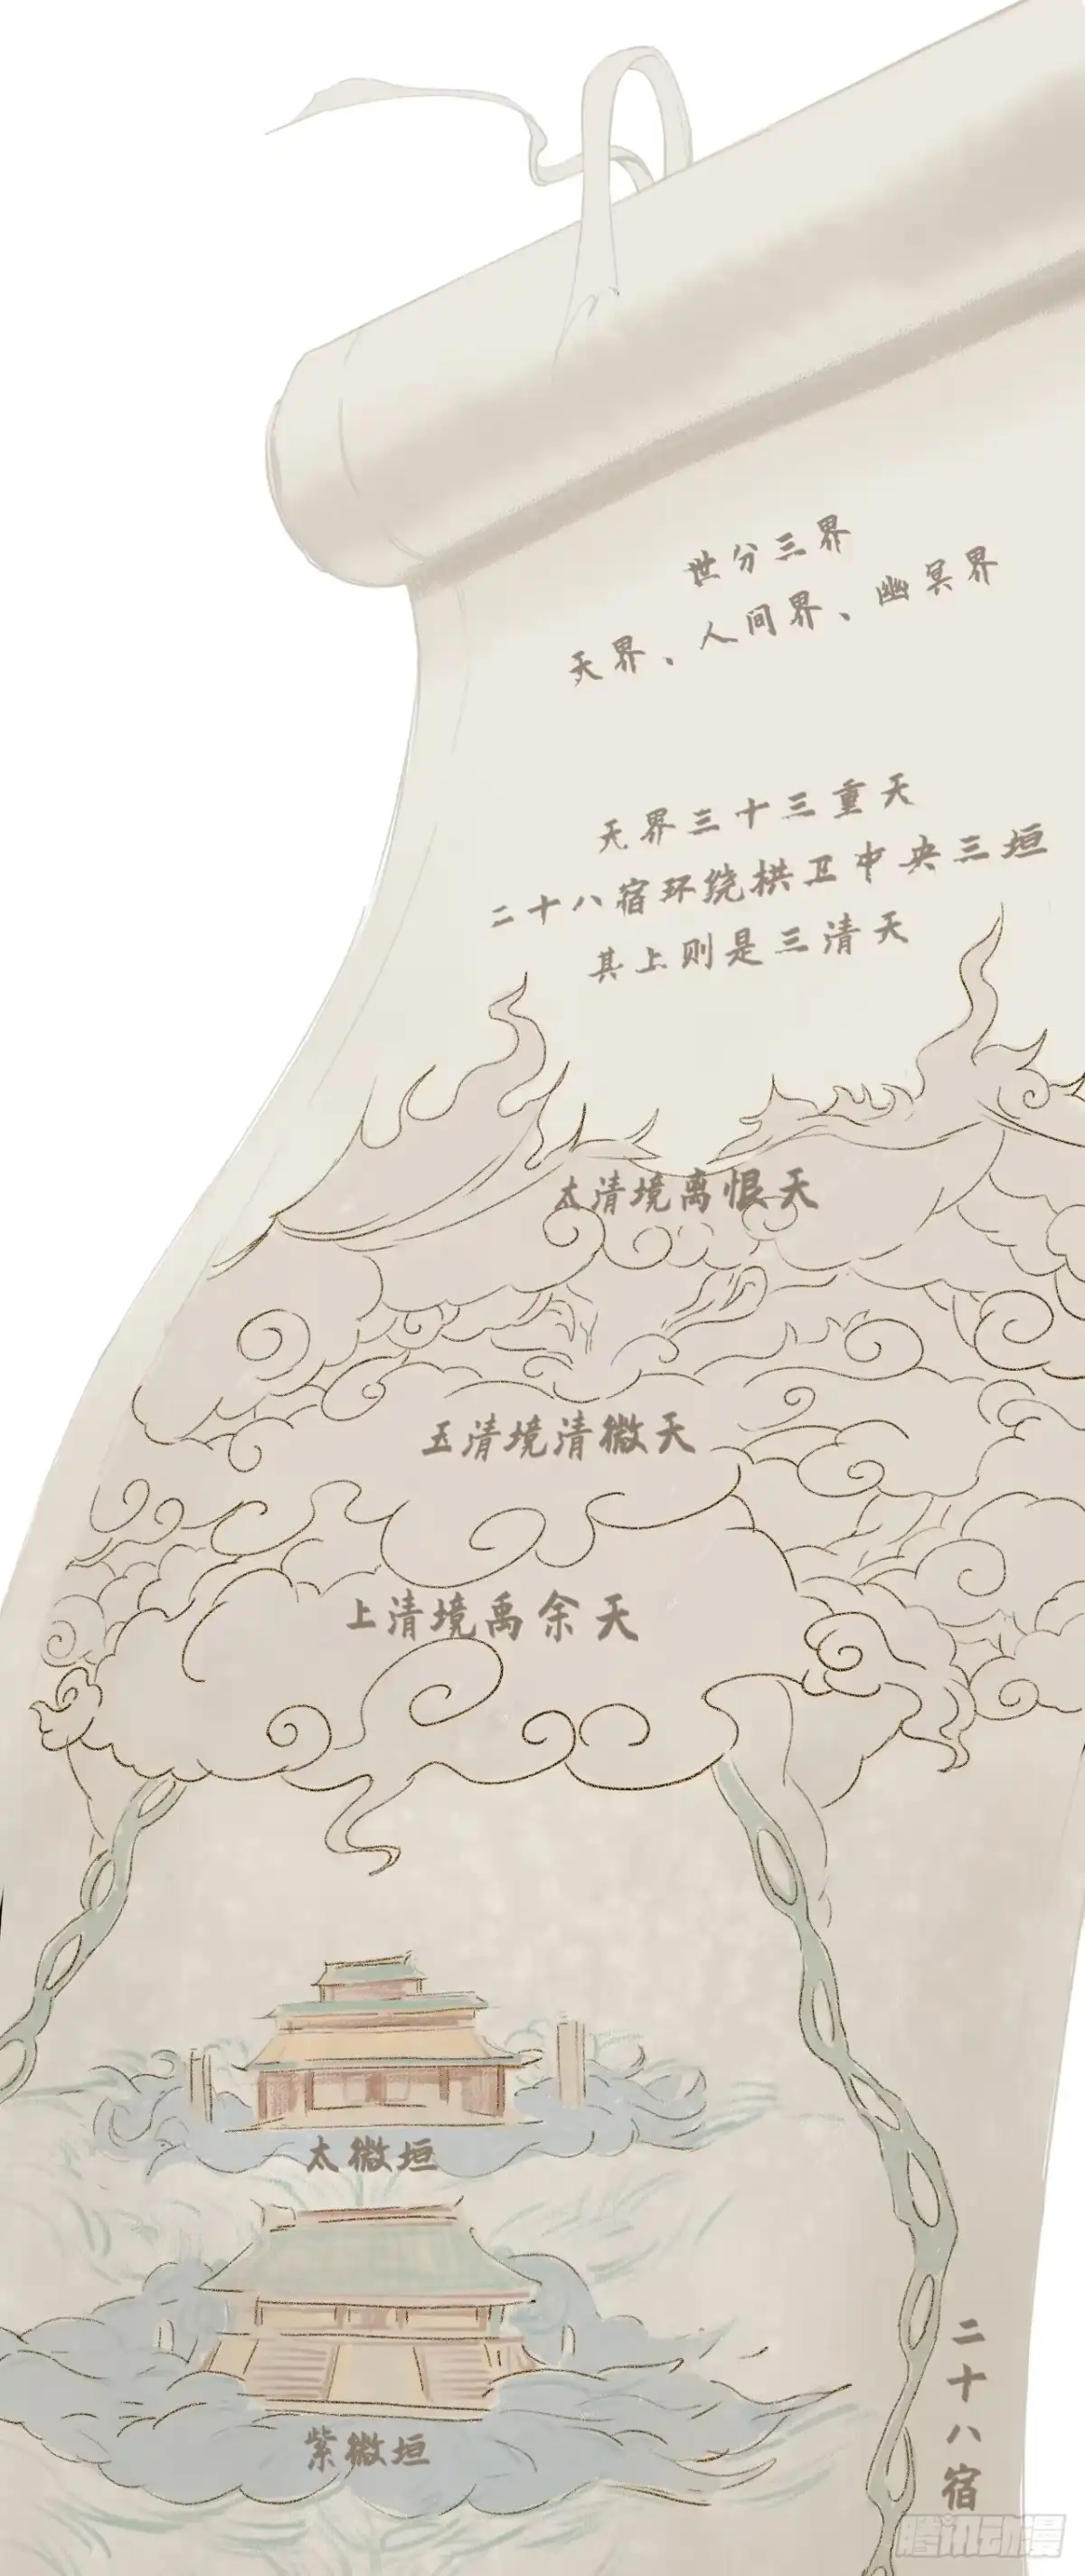 世分三界
天界、人间界、幽冥界
天界三十三重天
二十八宿环绕拱卫中央三垣
其上则是三清天
太清境离恨天
玉清境清微天
上清境禹余天
太微垣
紫微垣
二十八宿
腾讯动漫